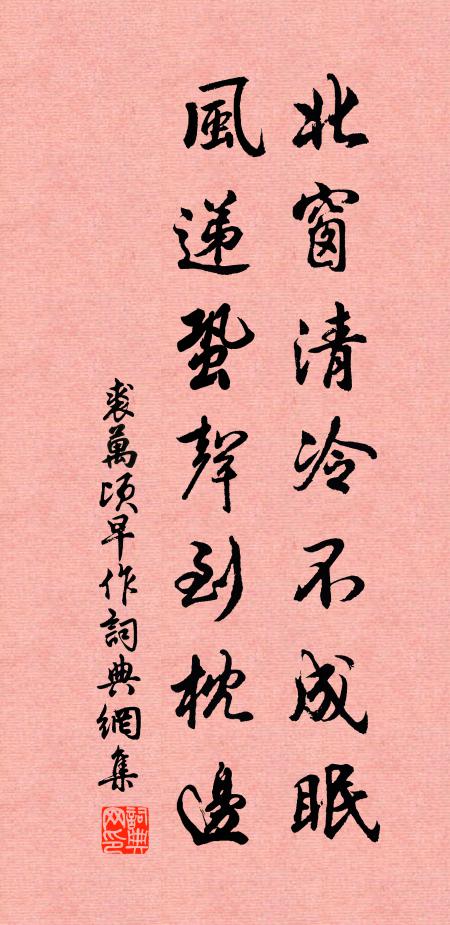 北窗清冷不成眠
風遞蛩聲到枕邊
裘萬頃早作詞典網集
詞典網印